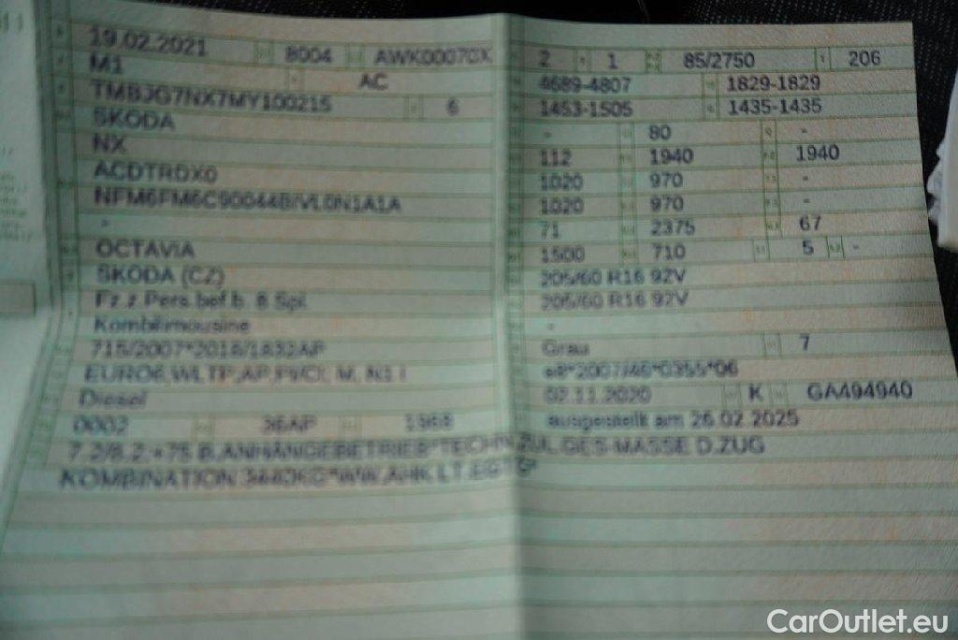 19.02.2021 8004 AWK00070X 2 1 85/2750 206
M1 AC 4689-4807 1829-1829
TMBJG7NX7MY100215 6 1453-1505 1435-1435
SKODA - 80 -
NX 112 1940 1940
ACDTRDX0 1020 970 -
1020 970 -
- 71 2375 67
OCTAVIA 1500 710 5 -
SKODA (CZ) 205/60 R16 92V
Fz.z.Pers.bef.b. 8 Spl. 205/60 R16 92V
Kombilimousine -
715/2007*2018/1832AP Grau 7
EURO6,WLTP,AP,PI/CI, M, N1 I e8*2007/46*0355*06
Diesel 02.11.2020 K GA494940
0002 36AP 1968 ausgestellt am 26.02.2025
7.2/8.2:+75 B.ANHÄNGEBETRIEB*TECHN.ZUL.GES-MASSE D.ZUG
KOMBINATION
CarOutlet.eu